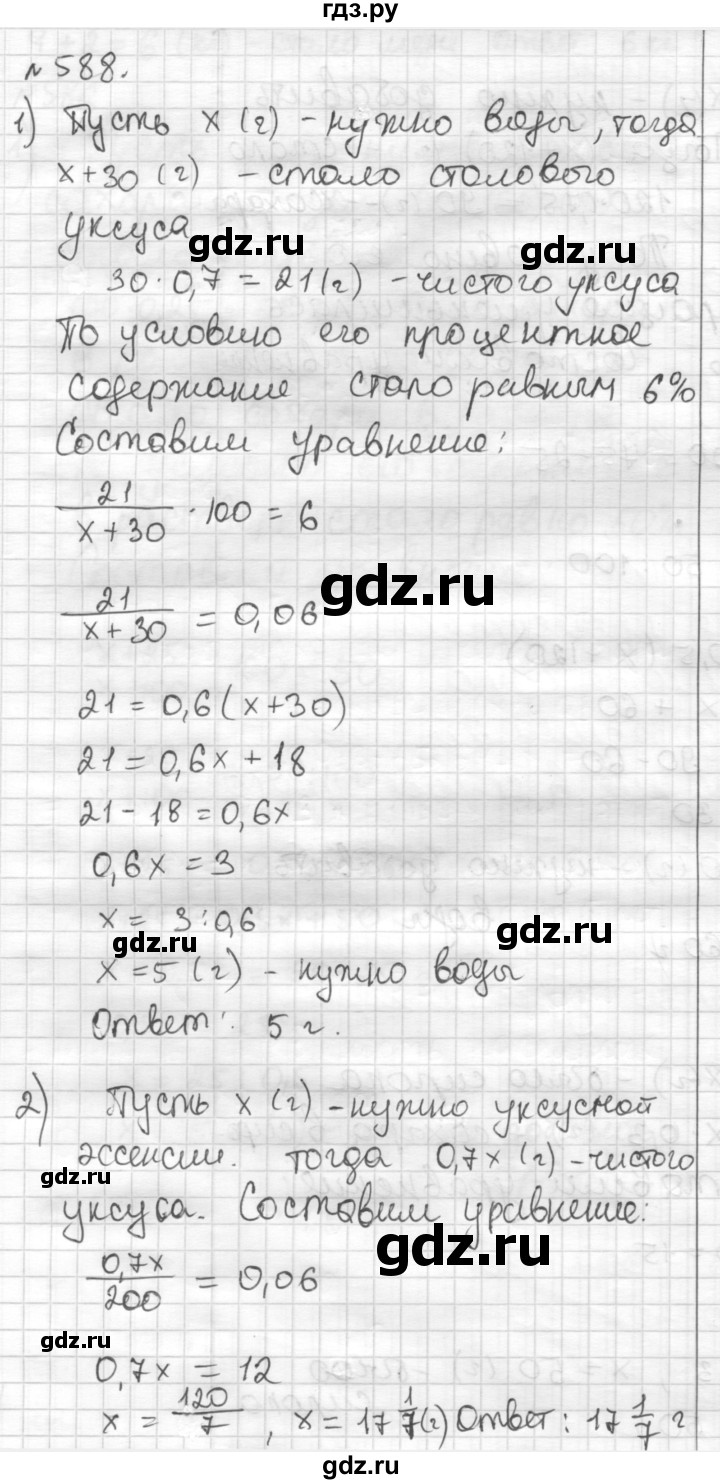 гдз.ру
№588.
1) Пусть x (г) - нужно воды, тогда
x+30 (г) - стало столового
уксуса
gdz.ru gdz.ru
30·0,7=21(г) - чистого уксуса
По условию его процентное
содержание стало равным 6%
Составим уравнение:
21/(x+30) · 100 = 6
gdz.ru
21/(x+30) = 0,06
21=0,6(x+30)
21=0,6x+18
21-18=0,6x
0,6x=3
x= 3:0,6
gdz.ru gdz.ru
x=5 (г) - нужно воды
Ответ: 5 г.
2) Пусть x (г) - нужно уксусной
эссенсии. тогда 0,7x (г) - чистого
gdz.ru
уксуса. Составим уравнение:
gdz.ru
0,7x/200 = 0,06
gdz.ru
0,7x = 12
x = 120/7, x = 17 1/7 (г) Ответ: 17 1/7 г
гдз.ру